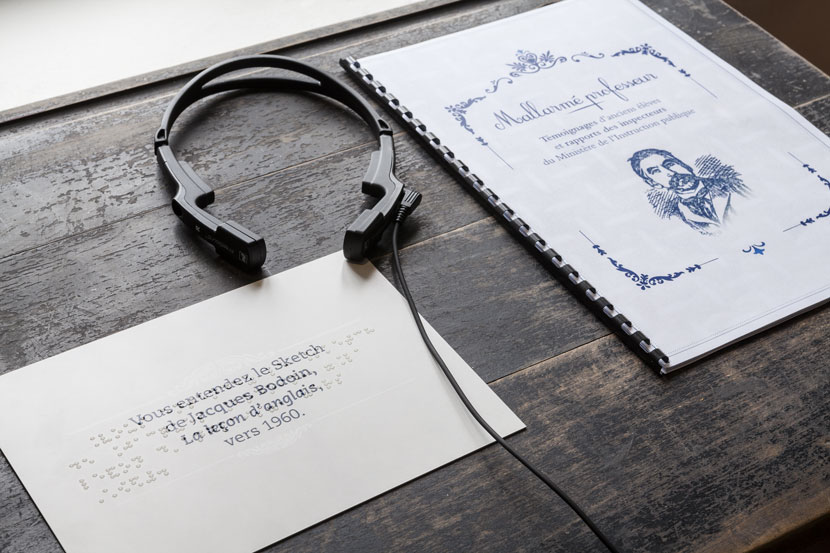 Mallarmé professeur
Témoignages d'anciens élèves
et rapports des inspecteurs
du Ministère de l'Instruction publique
Vous entendez le Sketch
de Jacques Bodoin,
La leçon d'anglais,
vers 1960.